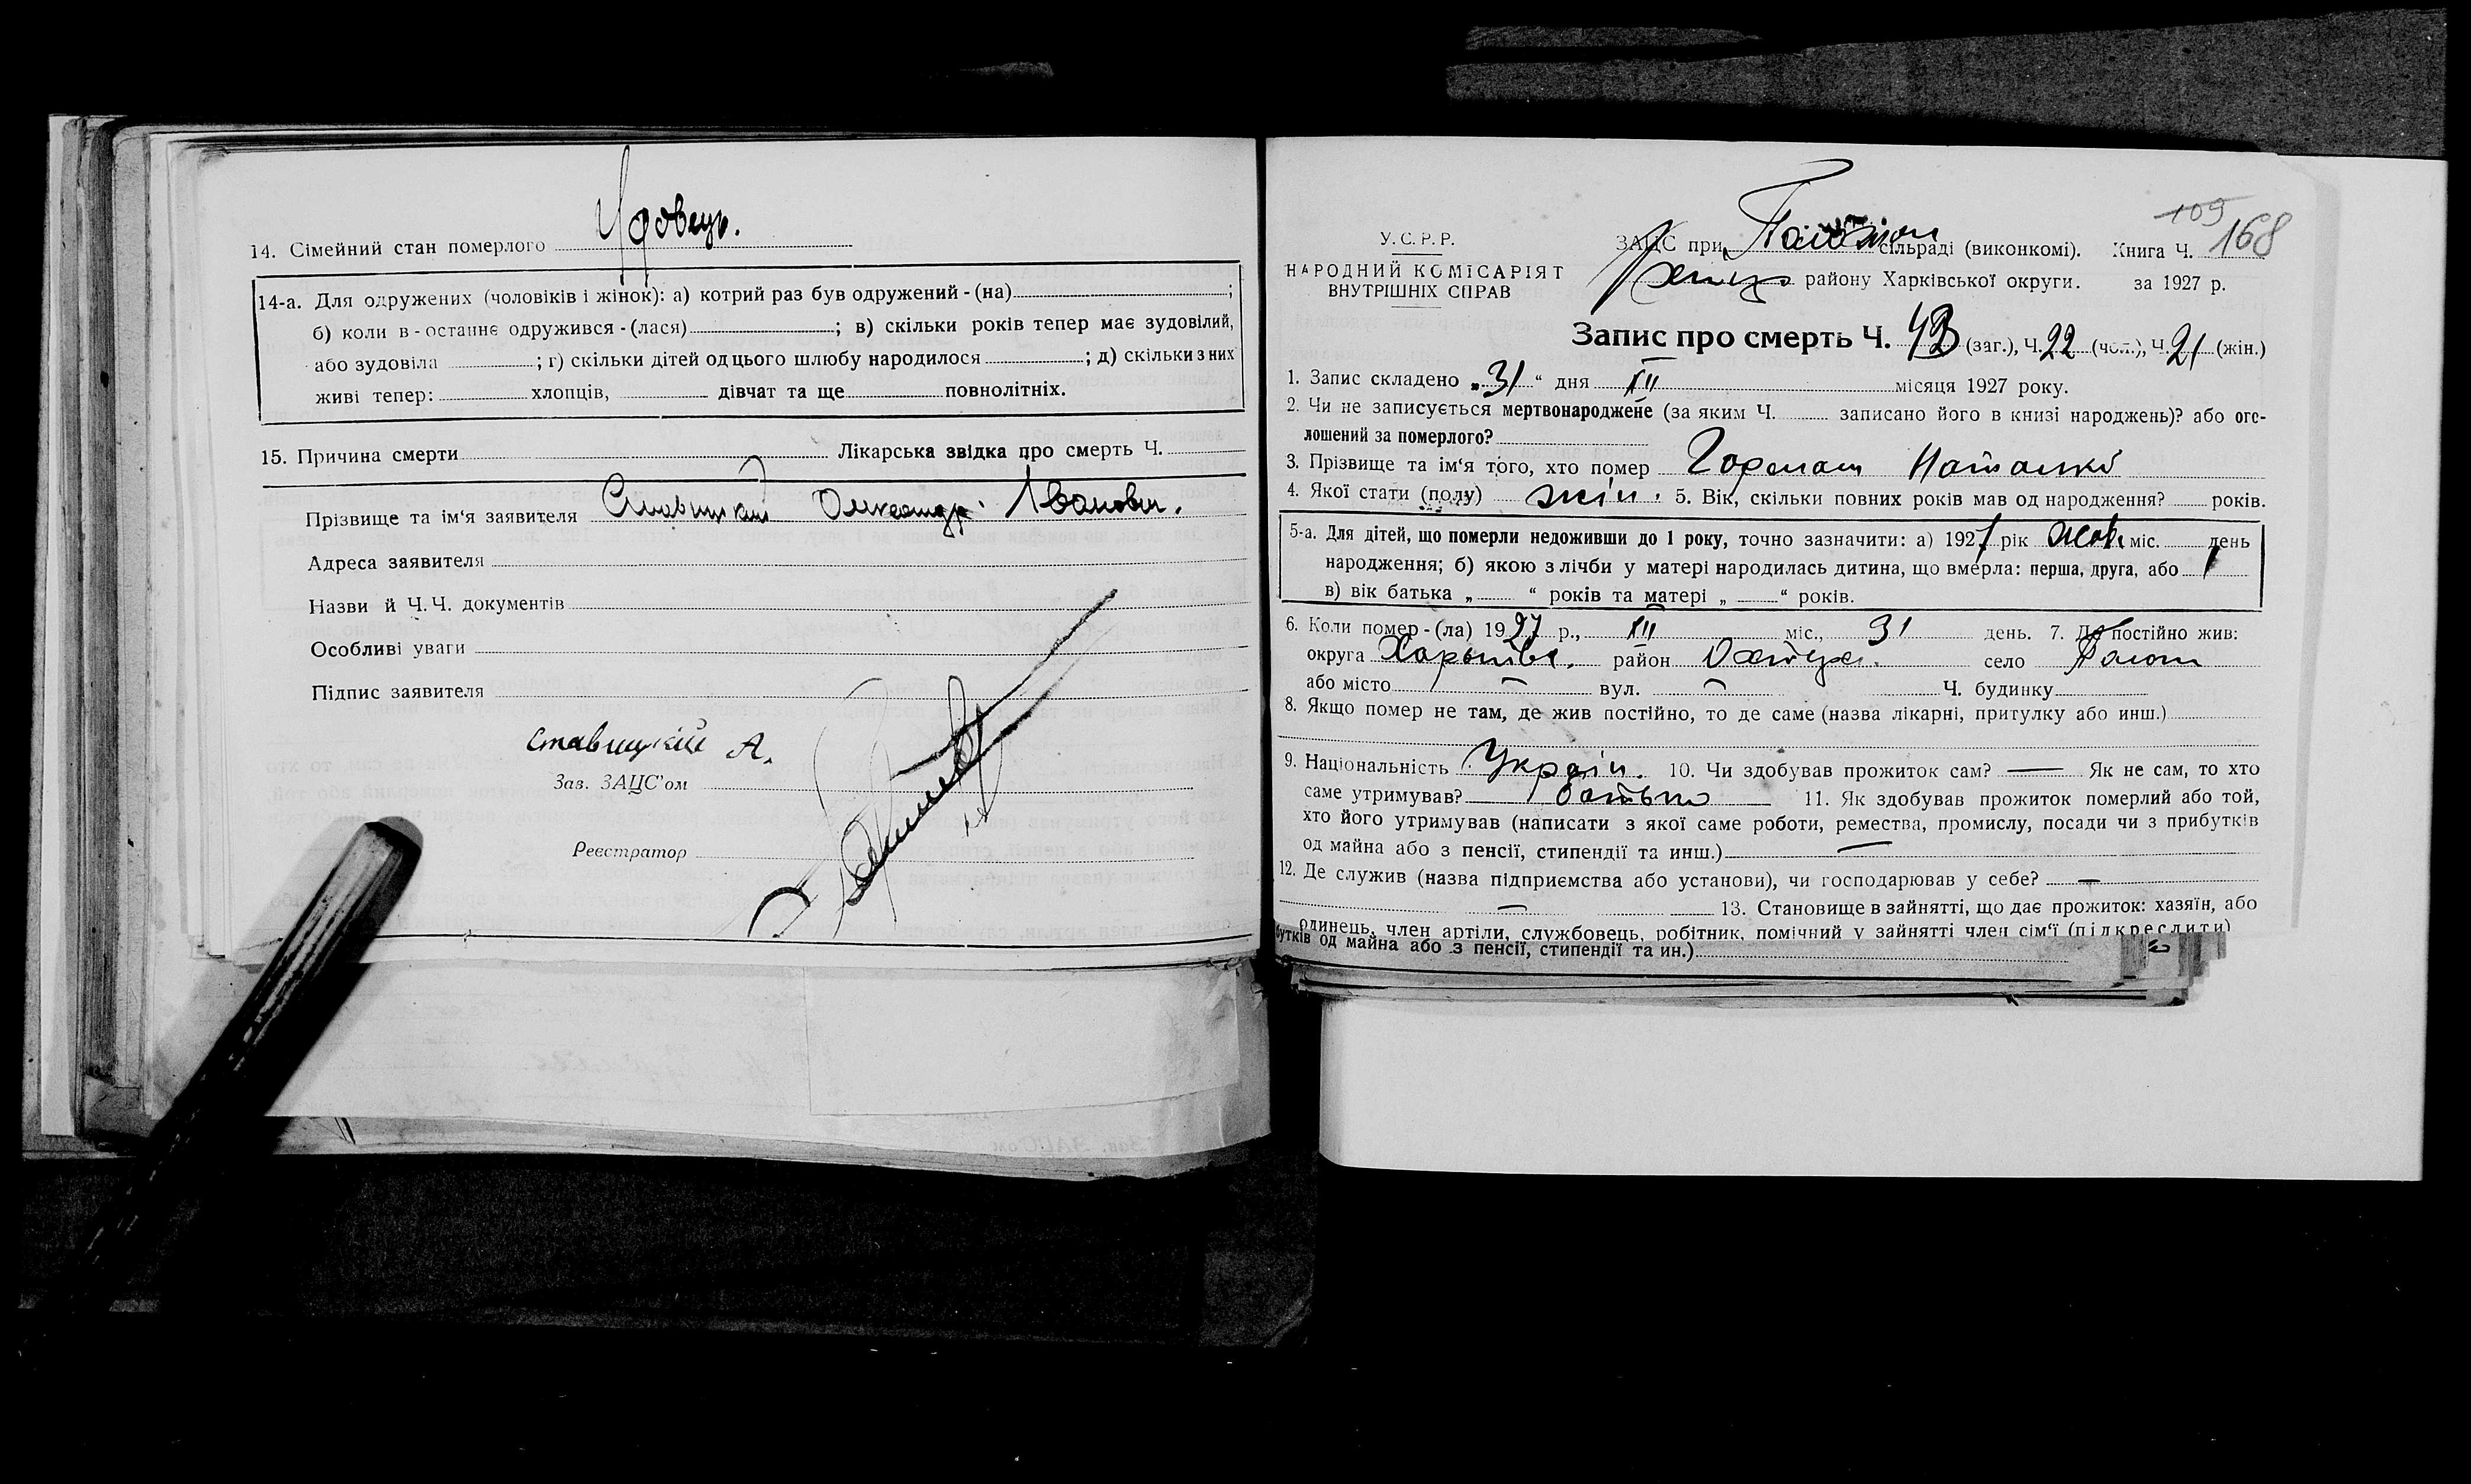 14. Сімейний стан померлого Удовець.
14-а. Для одружених (чоловіків і жінок): а) котрий раз був одружений - (на) ;
б) коли в - останнє одружився - (лася) ; в) скільки років тепер має зудовілий,
або зудовіла ; г) скільки дітей од цього шлюбу народилося ; д) скільки з них
живі тепер: хлопців, дівчат та ще повнолітніх.
15. Причина смерти Лікарська звідка про смерть Ч.
Прізвище та ім'я заявителя Ставицкий Олександр Іванович.
Адреса заявителя
Назви й Ч.Ч. документів
Особливі уваги
Підпис заявителя
Ставицкій А.
Зав. ЗАЦС'ом
Реєстратор
109
168
У.С.Р.Р.
НАРОДНИЙ КОМІСАРІЯТ
ВНУТРІШНІХ СПРАВ
ЗАЦС при сільраді (виконкомі). Книга Ч.
району Харківської округи. за 1927 р.
Запис про смерть Ч. 43 (заг.), Ч. 22 (чол.), Ч. 21 (жін.)
1. Запис складено „31“ дня XII місяця 1927 року.
2. Чи не записується мертвонароджене (за яким Ч. записано його в книзі народжень)? або ого-
лошений за померлого?
3. Прізвище та ім'я того, хто помер
4. Якої стати (полу) жін. 5. Вік, скільки повних років мав од народження? років.
5-а. Для дітей, що померли недоживши до 1 року, точно зазначити: а) 1927 рік міс. день
народження; б) якою з лічби у матері народилась дитина, що вмерла: перша, друга, або 1
в) вік батька „ “ років та матері „ “ років.
6. Коли помер - (ла) 1927 р., XII міс., 31 день. 7. Де постійно жив:
округа район село
або місто — вул. — Ч. будинку
8. Якщо помер не там, де жив постійно, то де саме (назва лікарні, притулку або инш.)
9. Національність Україн. 10. Чи здобував прожиток сам? — Як не сам, то хто
саме утримував? батько 11. Як здобував прожиток померлий або той,
хто його утримував (написати з якої саме роботи, ремества, промислу, посади чи з прибутків
од майна або з пенсії, стипендії та инш.) —
12. Де служив (назва підприємства або установи), чи господарював у себе? —
— 13. Становище в зайнятті, що дає прожиток: хазяїн, або
одинець, член артіли, службовець, робітник, помічний у зайнятті член сім'ї (підкреслити)
бутків од майна або з пенсії, стипендії та ин.)